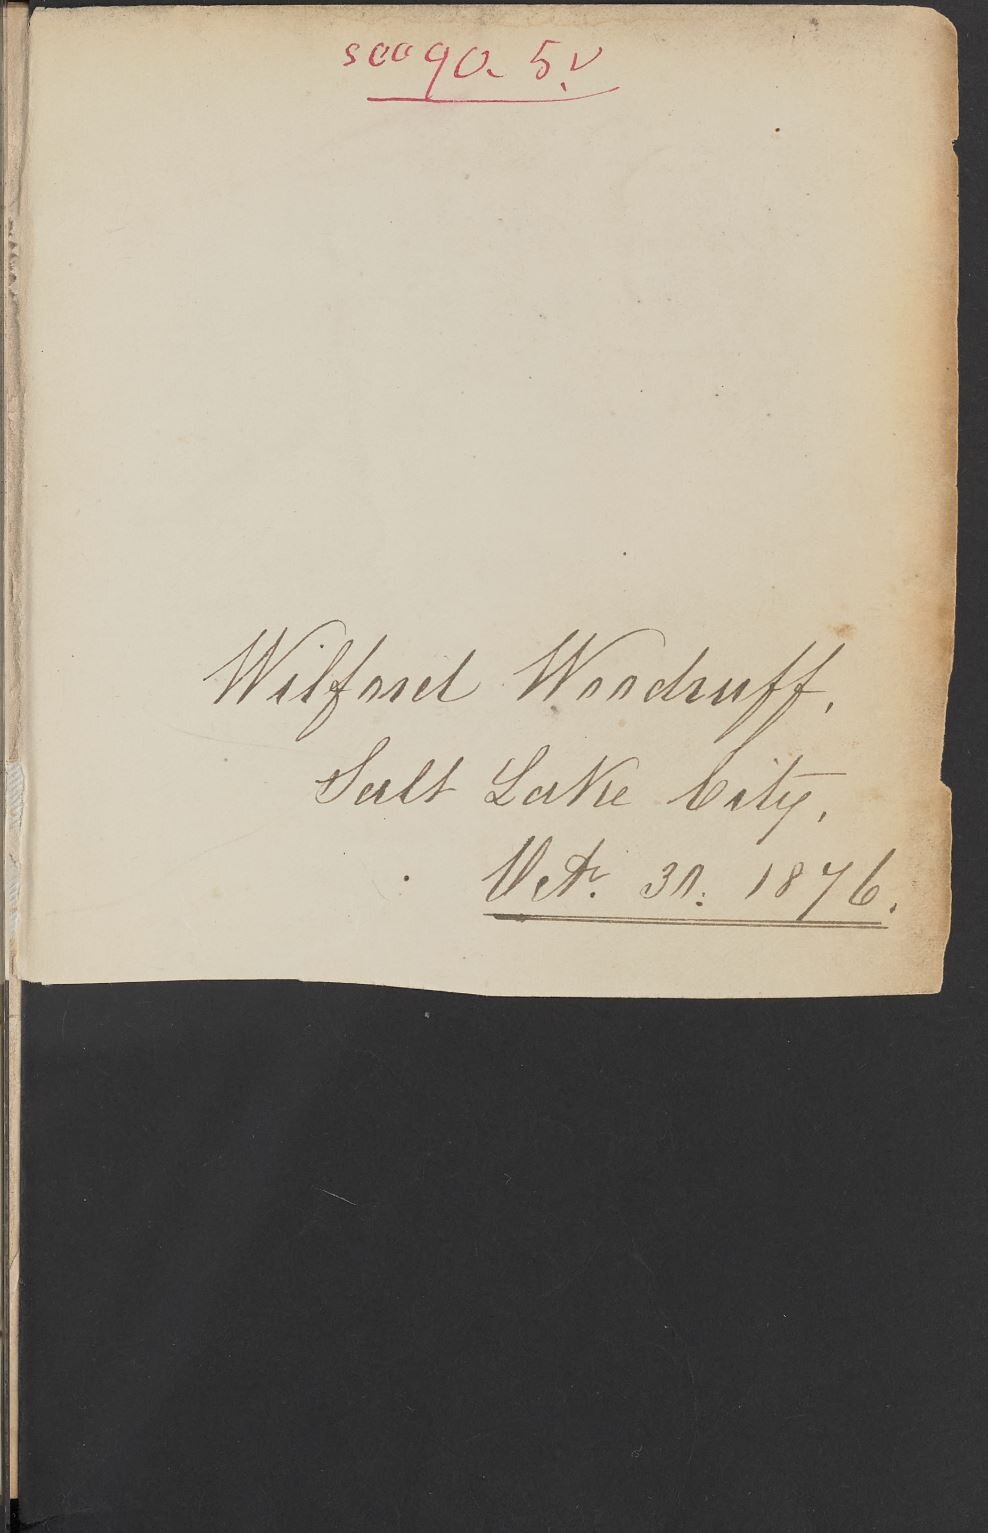 see 90. 5.v
Wilford Woodruff,
Salt Lake City,
Oct. 30. 1876.